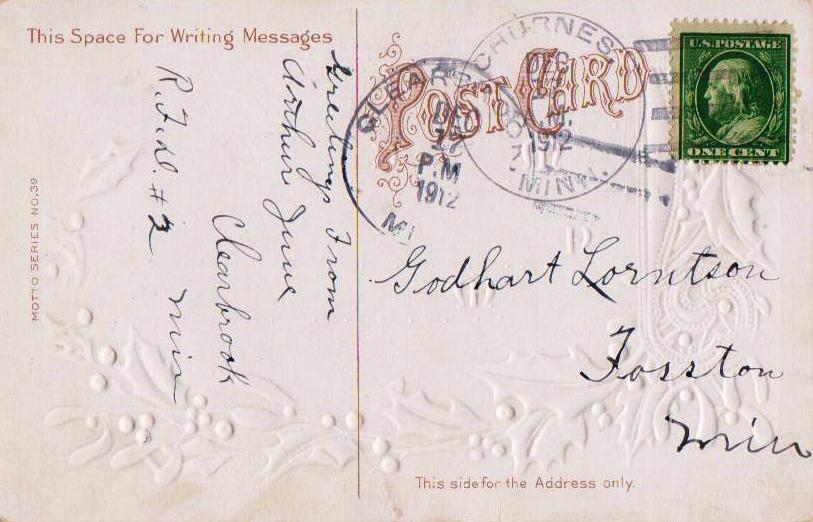 This Space For Writing Messages
Greetings From
Arthur June
Clearbrook
R.F.D. #2 Min
MOTTO SERIES NO. 39
POST CARD
CLEAR
DE
12
P.M
1912
MI
CHURNES
DEC
1912
MINN.
U.S. POSTAGE
ONE CENT
Godhart Lorntson
Fosston
Min
This side for the Address only.